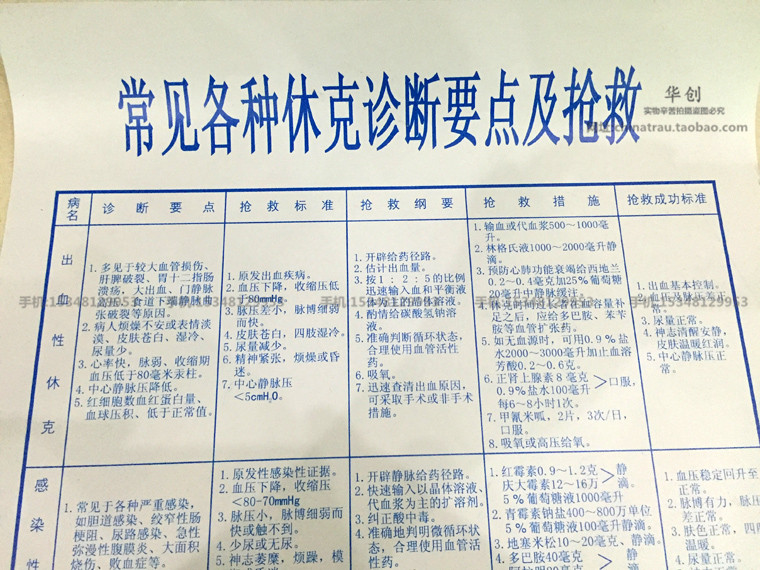 常见各种休克诊断要点及抢救
华创
实物辛苦拍摄盗图必究
chinatrau.taobao.com
病名
诊断要点
抢救标准
抢救纲要
抢救措施
抢救成功标准
出血性休克
1.多见于较大血管损伤、
肝脾破裂、胃十二指肠
溃疡、大出血、门静脉
高压、食道下端静脉曲
张破裂等原因。
2.病人烦燥不安或表情淡
漠、皮肤苍白、湿冷、
尿量少。
3.心率快，脉弱、收缩期
血压低于80毫米汞柱。
4.中心静脉压降低。
5.红细胞数血红蛋白量、
血球压积、低于正常值。
1.原发出血疾病。
2.血压下降，收缩压低
于80mmHg
3.脉压差小，脉博细弱
而快。
4.皮肤苍白，四肢湿冷。
5.尿量减少。
6.精神紧张，烦燥或昏
迷。
7.中心静脉压
<5cmH₂O。
1.开辟给药径路。
2.估计出血量。
3.按1：2：5的比例
迅速输入血和平衡液
体为主的晶体溶液。
4.酌情给碳酸氢钠溶
液。
5.准确判断循环状态，
合理使用血管活性
药。
6.吸氧。
7.迅速查清出血原因，
可采取手术或非手术
措施。
1.输血或代血浆500～1000毫
升。
2.林格氏液1000～2000毫升静
滴。
3.预防心肺功能衰竭给西地兰
0.2～0.4毫克加25%葡萄糖
20毫升中静脉缓注
4.休克时间过长者在血容量补
足之后，应给多巴胺、苯苄
胺等血管扩张药。
5.如无血源时，可用0.9%盐
水2000～3000毫升加止血溶
芳酸0.2～0.6克。
6.正肾上腺素8毫克
0.9%盐水100毫升>口服，
每6～8小时1次。
7.甲氰米呱，2片，3次/日，
口服。
8.吸氧或高压给氧。
1.出血基本控制。
2.血压及脉压差正
常。
3.尿量正常。
4.神志清醒安静，
皮肤温暖红润。
5.中心静脉压正常。
手机:15348129953
感染性
1.常见于各种严重感染，
如胆道感染、绞窄性肠
梗阻、尿路感染、急性
弥漫性腹膜炎、大面积
烧伤、败血症等。
1.原发性感染性证据。
2.血压下降，收缩压
<80-70mmHg
3.脉压小，脉博细弱而
快或触不到。
4.少尿或无尿。
5.神志萎糜，烦躁，模
1.开辟静脉给药径路。
2.快速输入以晶体溶液、
代血浆为主的扩溶剂。
3.纠正酸中毒。
4.准确地判明微循环状
态，合理使用血管活
性药。
1.红霉素0.9～1.2克>静
庆大霉素12～16万 滴。
5%葡萄糖液1000毫升
2.青霉素钠盐400～800万单位
5%葡萄糖液100毫升静滴。
3.地塞米松10～20毫克、静滴。
4.多巴胺40毫克>静
滴。
1.血压稳定回升至
正常。
2.脉博有力，脉压
差正常。
3.肤色正常，四
温暖。
4.尿量正常。